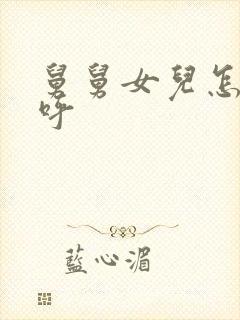 舅舅女兒怎
呼
藍心湄